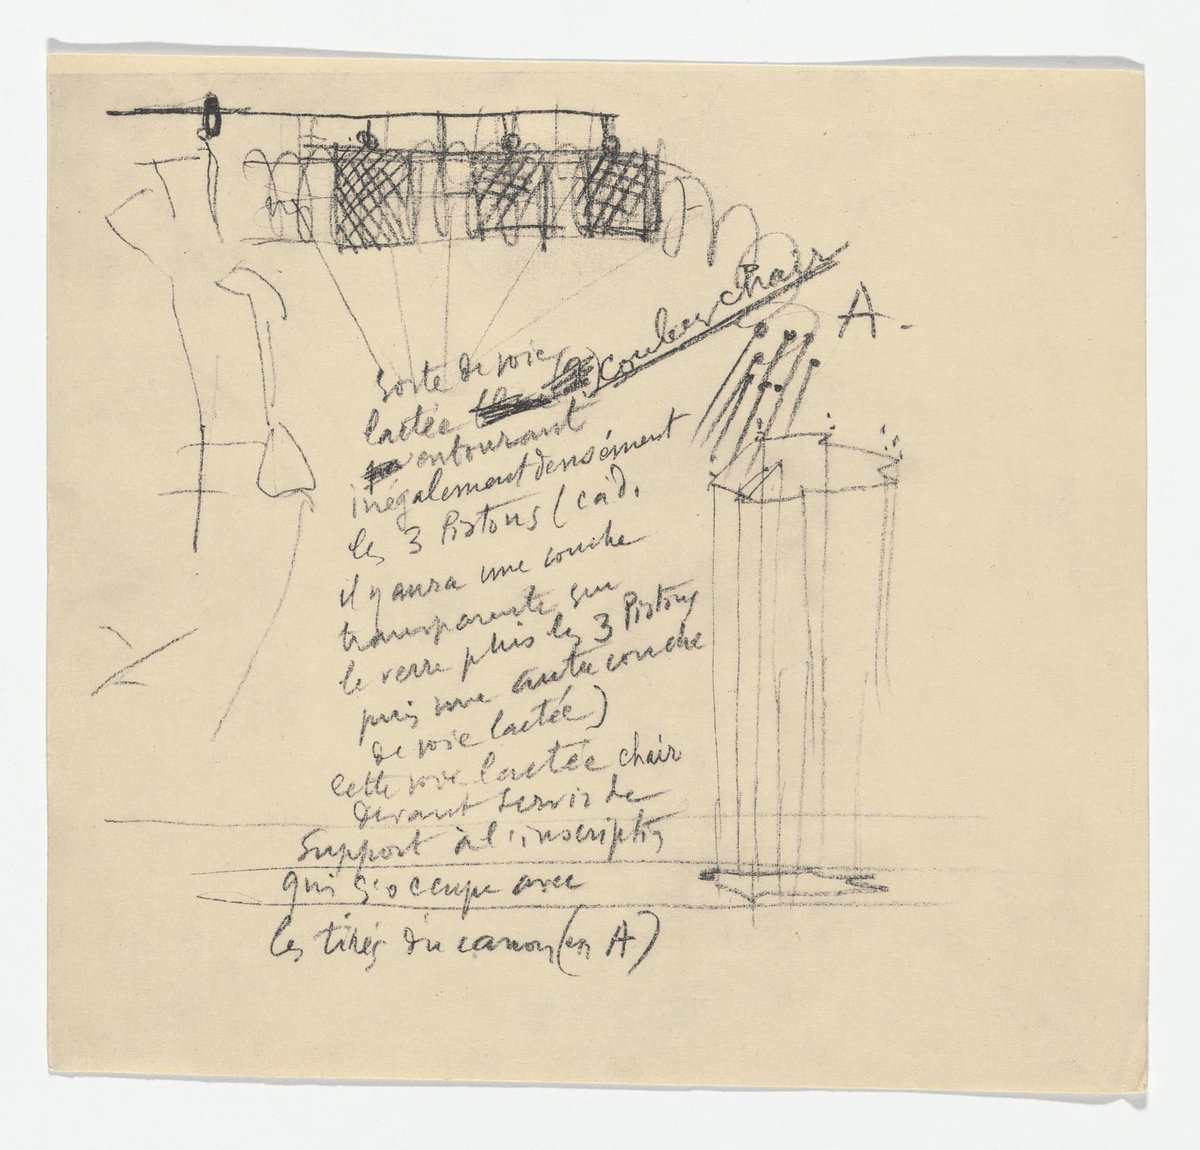 Sorte de voie
lactée couleur chair
entourant
inégalement densément
les 3 Pistons (càd.
il y aura une couche
transparente sur
le verre puis les 3 Pistons
puis une autre couche
de voie lactée)
Cette voie lactée chair
devant servir de
Support à l'inscription
qui s'occupe avec
les tirés du canon (en A)
A.